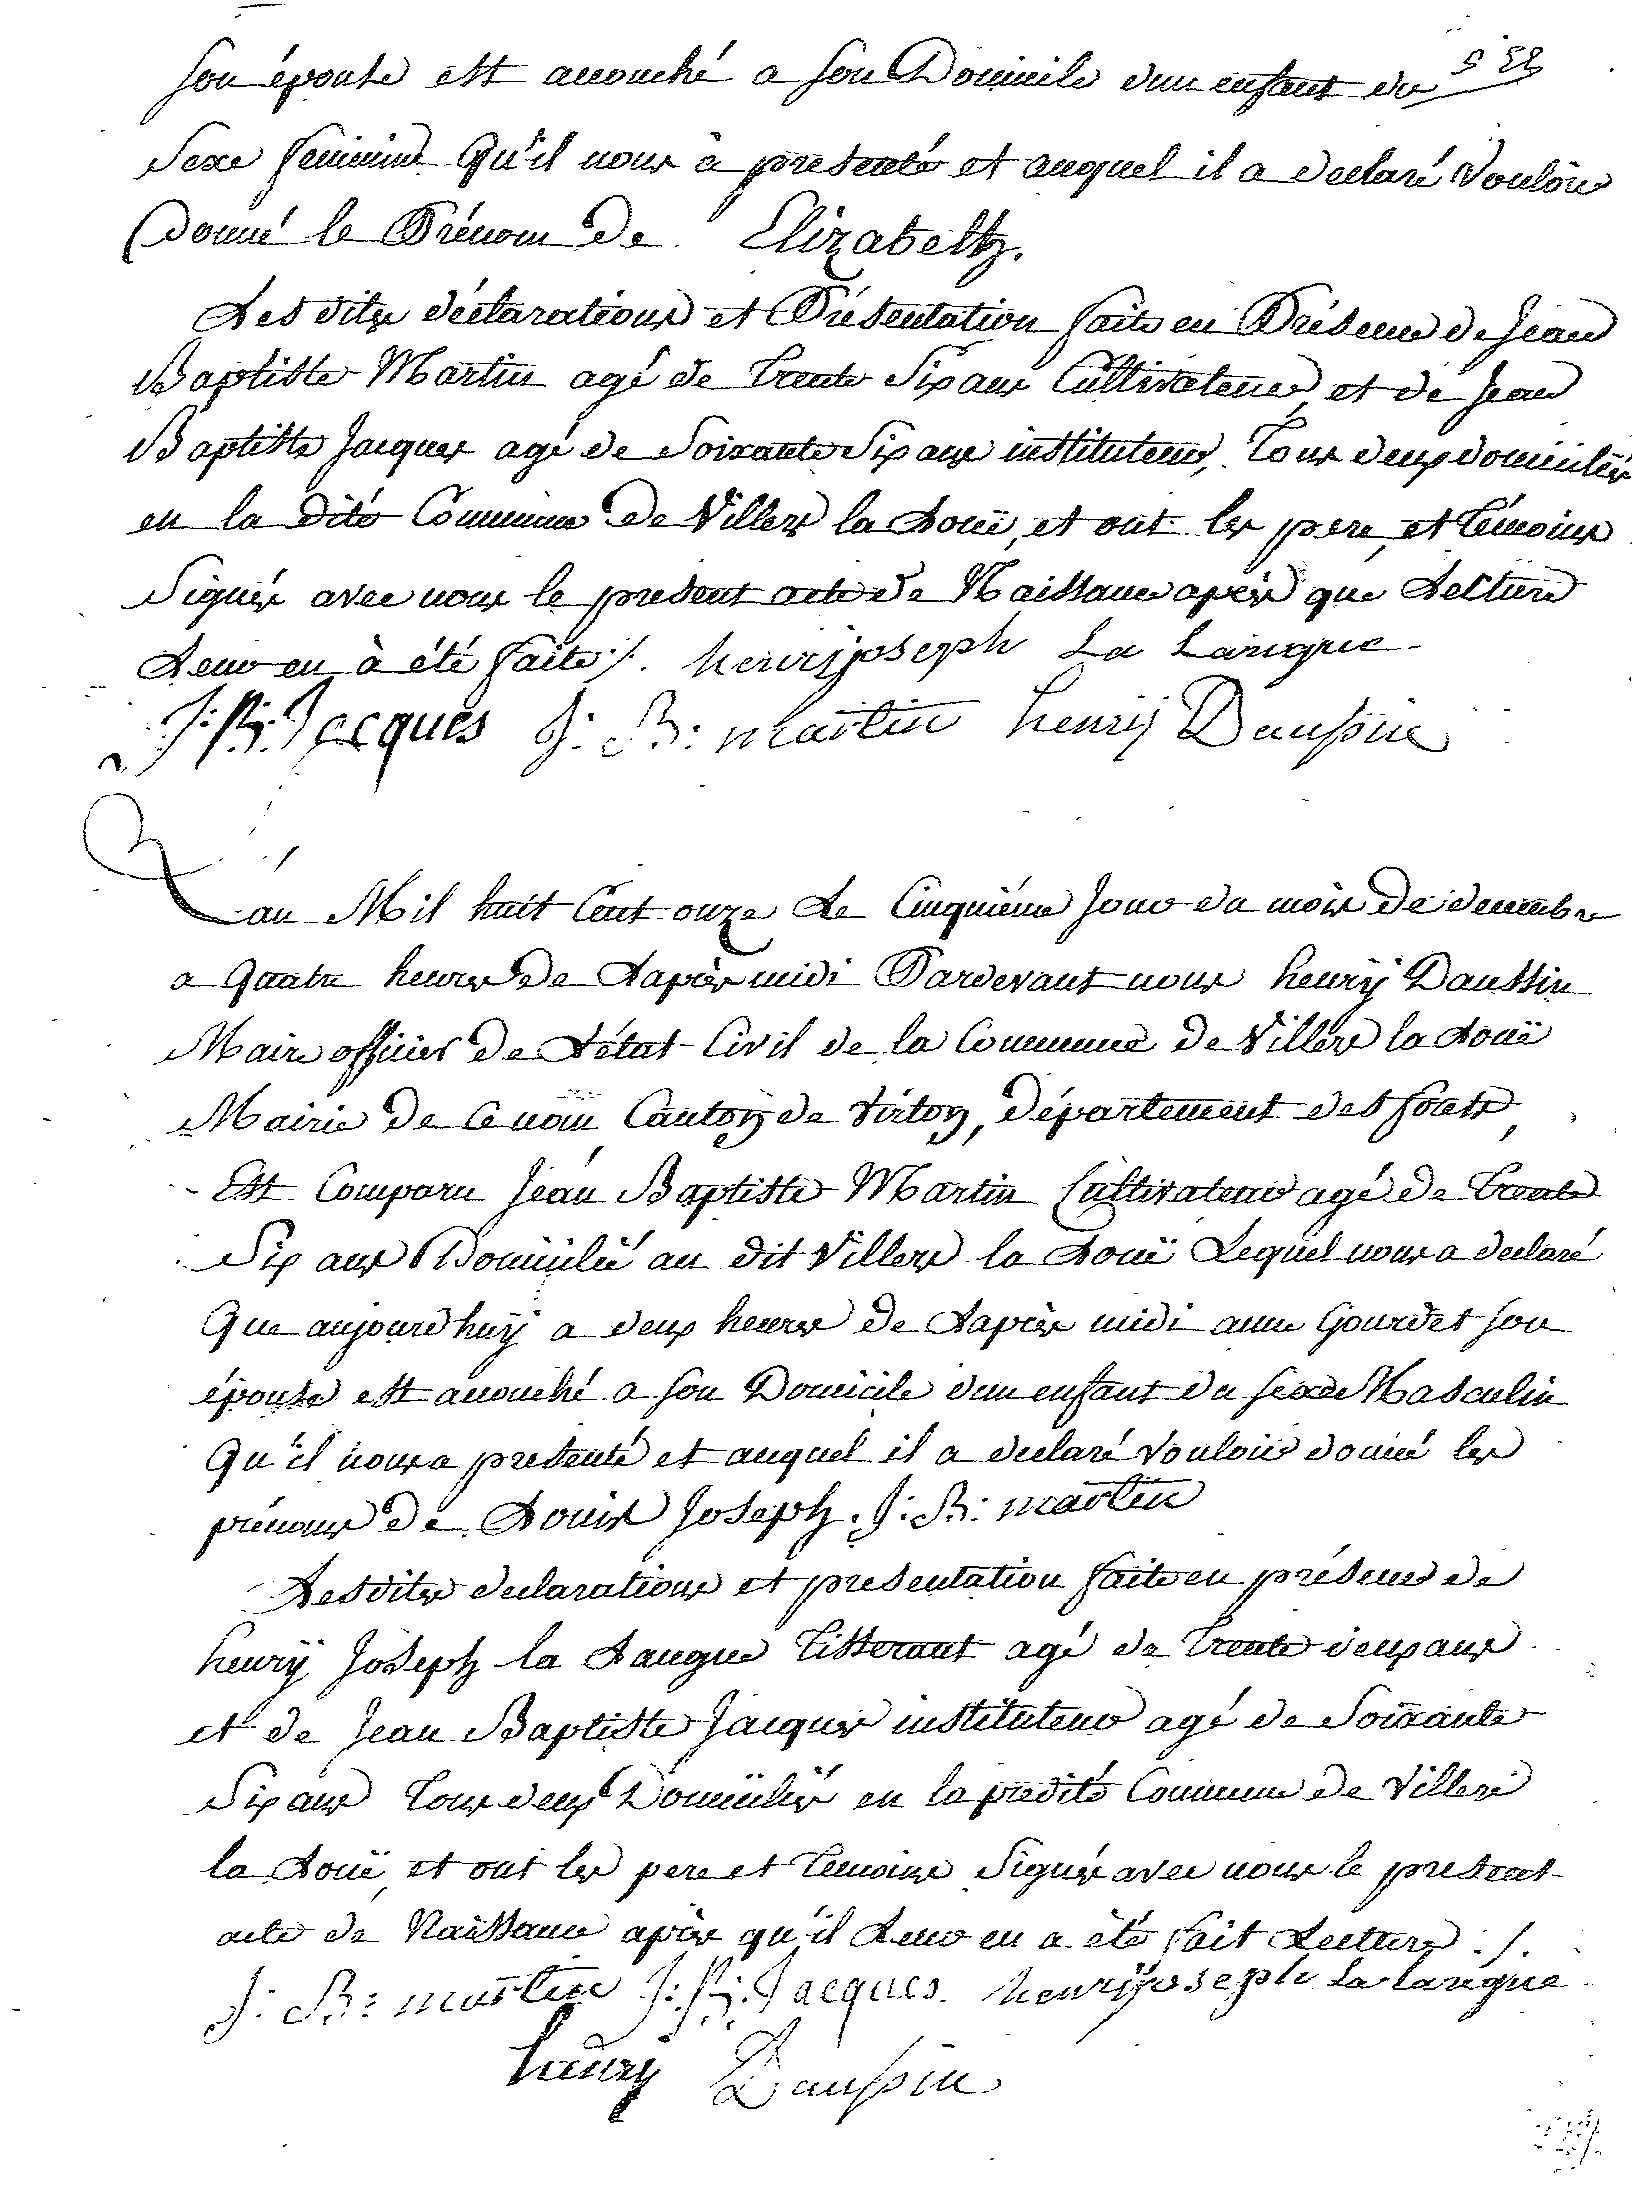 son épouse est accouché a son Domicile d'un enfant du
Sexe feminine Qu'il nous à presenté et auquel il a declaré Vouloir
Donné le Prénom de Elizabeth.
Les dites déclarations et Présentation faite en Présence de Jean
Baptiste Martin agé de trente Six ans Cultivateur, et de Jean
Baptiste Jacques agé de Soixante Six ans instituteur, Tous deux domiciliés
en la dite Commune de Villers la Loüe, et ont les pere, et témoins
Signés avec nous le present acte de Naissance après que Lecture
Leur en à été faite /. henrij joseph La Langue
J: B: Jacques J: B: martin henrij Daussin
L'an Mil huit Cent onze Le Cinquième Jour du mois de decembre
a Quatre heures de L'après midi Pardevant nous henrÿ Daussin
Maire officier de L'état Civil de la Commune de Villers la Loüe
Mairie de Ce nom Canton de Virton, département des forêts,
Est Comparu Jean Baptiste Martin Cultivateur agé de Trente
Six ans Domicilié au dit Villers la Loüe Lequel nous a declaré
Que aujourd'huÿ a deux heures de L'après midi anne Gourdet son
épouse est accouché a son Domicile d'un enfant du sexe Masculin
Qu'il nous a presenté et auquel il a declaré Vouloir donné les
prénoms de Louis Joseph. J: B: martin
Les dites declarations et presentation faite en présence de
henrÿ Joseph la Langue Tisserant agé de Trente deux ans
et de Jean Baptiste Jacques instituteur agé de Soixante
Six ans Tous deux Domiciliés en la predite Commune de Villers
la Loüe, et ont les pere et Temoins Signés avec nous le present
acte de Naissance après qu'il Leur en a été fait Lecture ./.
J: B: martin J: B: Jacques. henrij joseph La langue
henrij Daussin